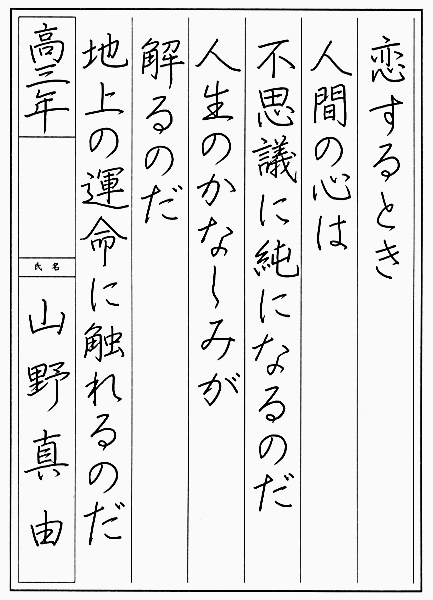 恋するとき
人間の心は
不思議に純になるのだ
人生のかなしみが
解るのだ
地上の運命に触れるのだ
高三年
氏名
山野真由